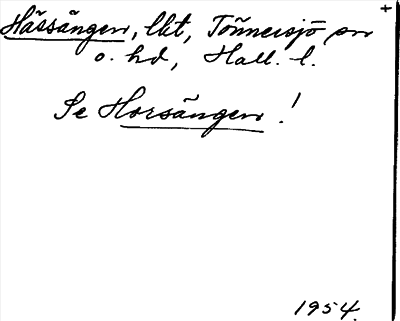 Hässängen, lkt, Tönnersjö sn
o. hd, Hall. l.
Se Horsängen!
1954.